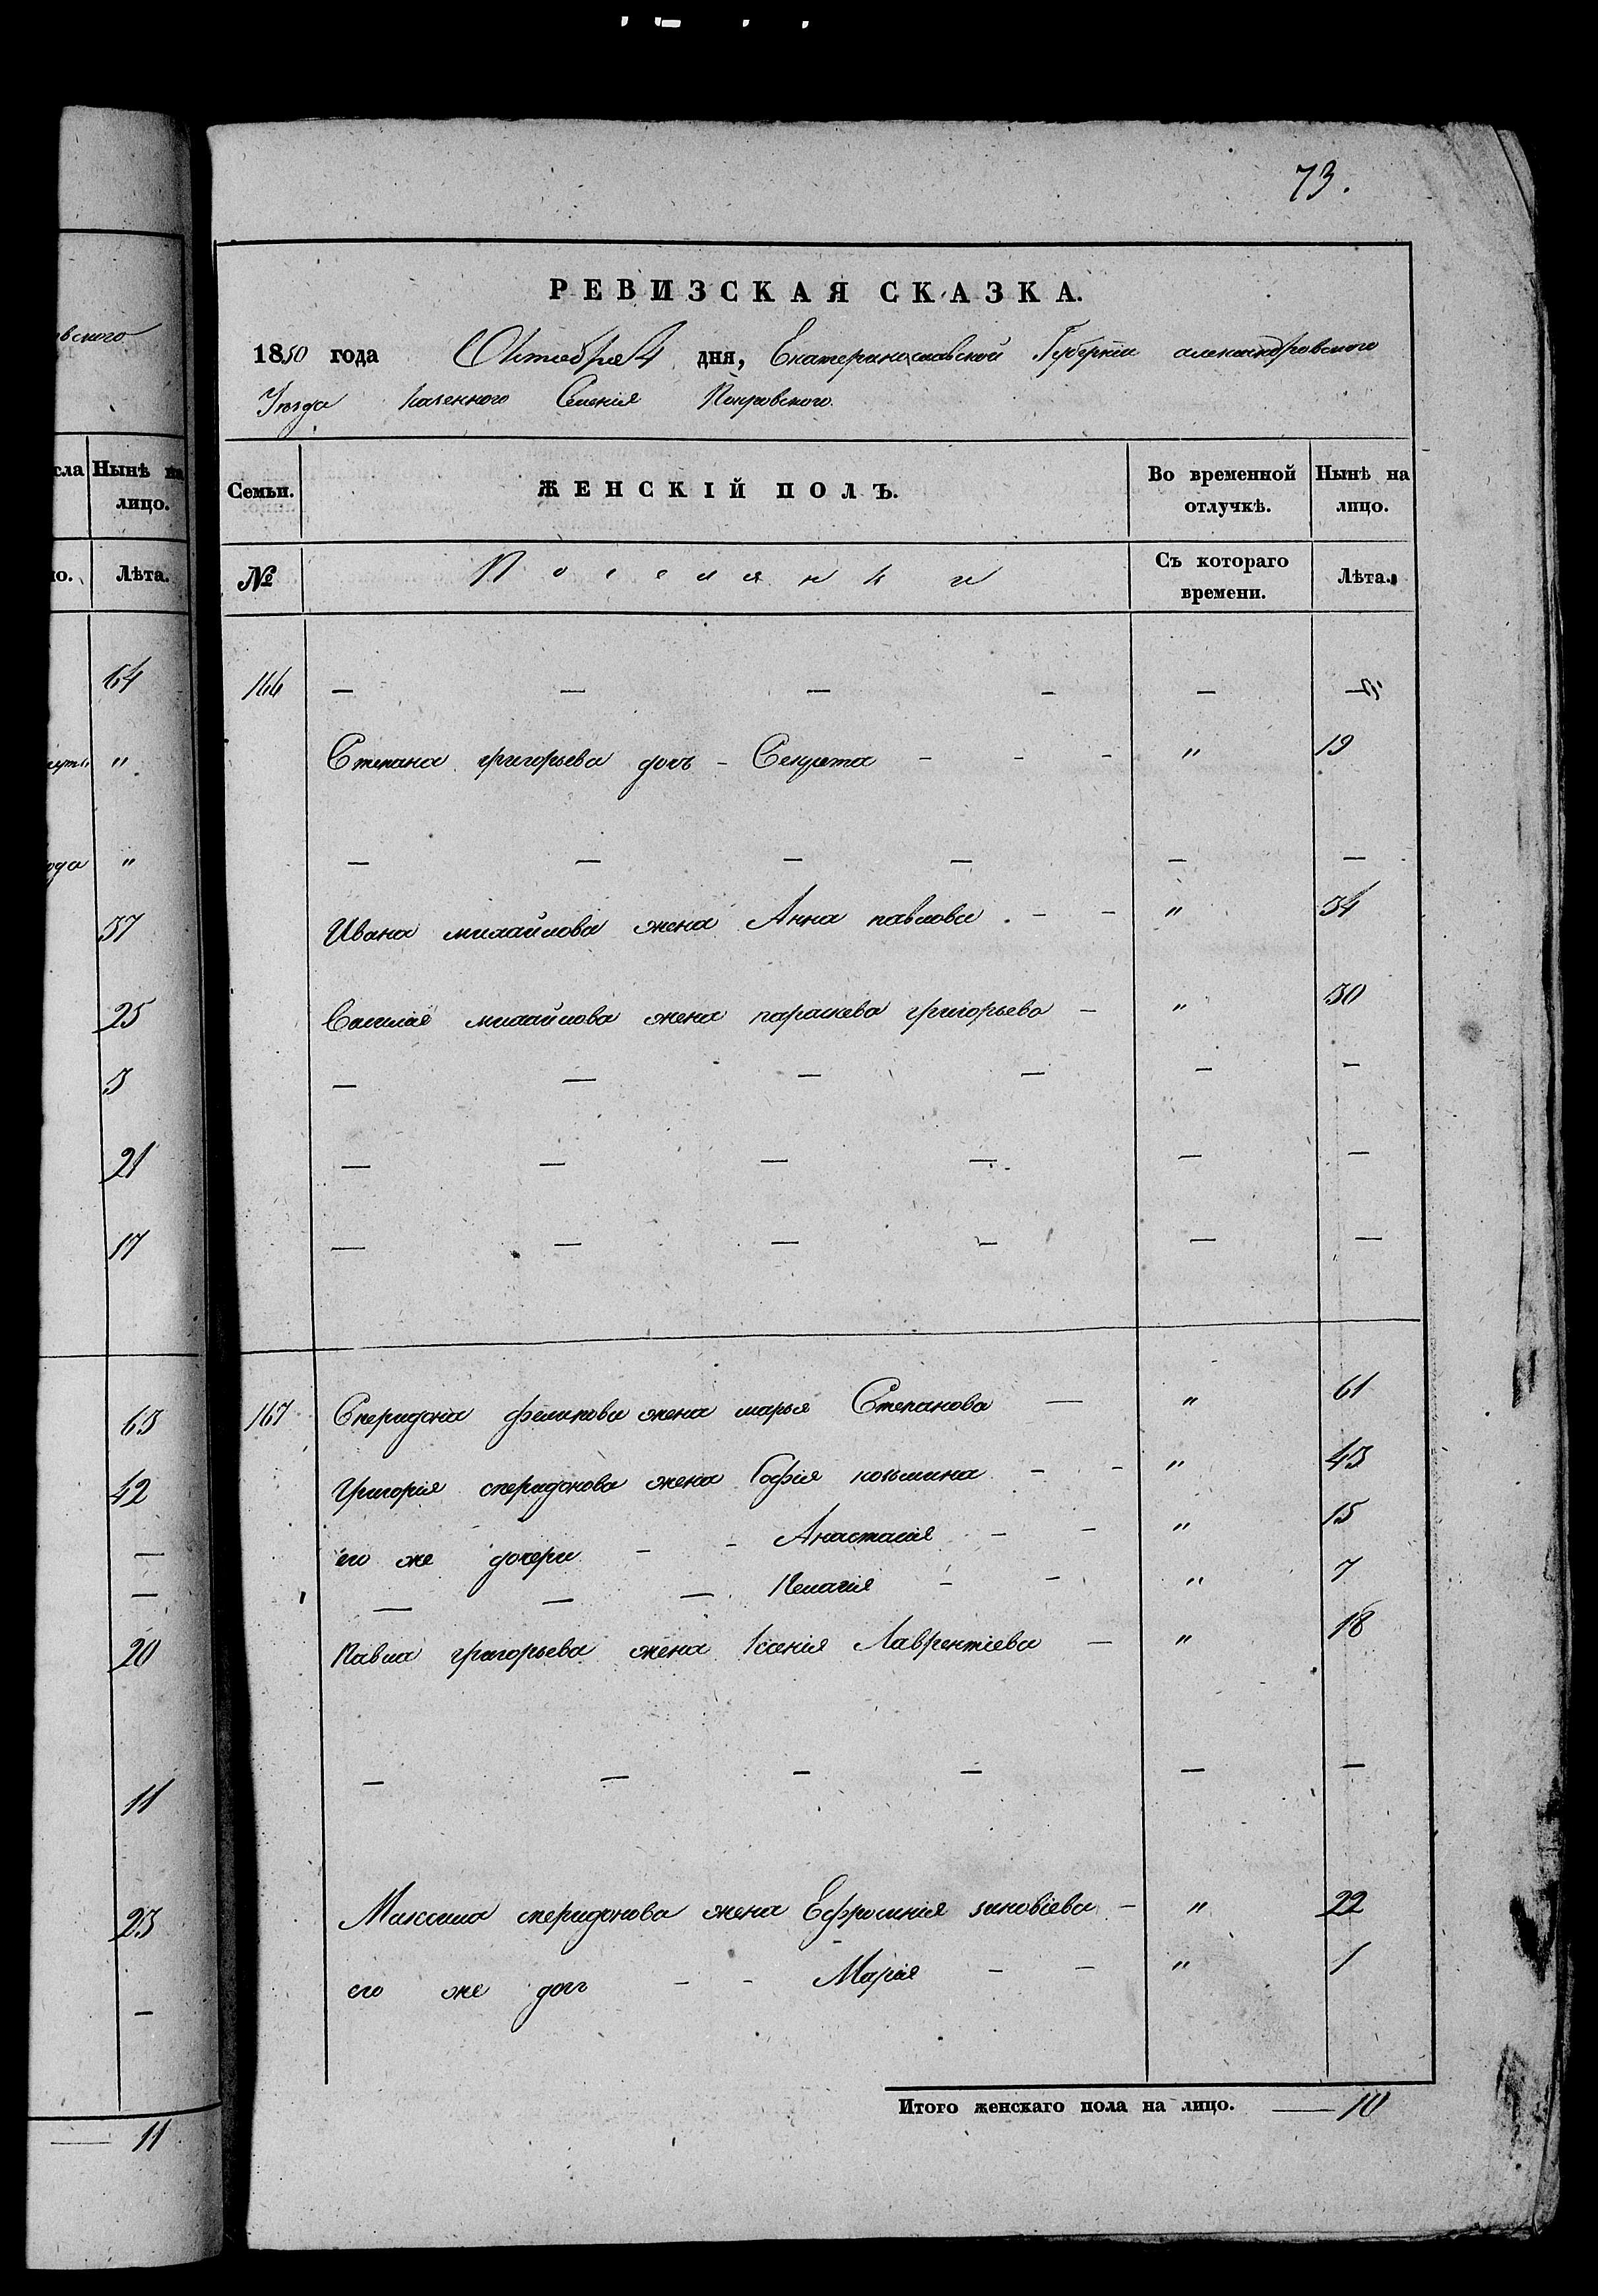 вского
сла Нынѣ на
лицо.
но. Лѣта.
64
"
ода "
37
25
3
21
17
63
42
—
—
20
11
23
—
— 11
73.
РЕВИЗСКАЯ СКАЗКА.
1850 года Октября 4 дня, Екатеринославской Губерніи александровского
Уѣзда казенного Селенія Покровского.
Семьи. ЖЕНСКІЙ ПОЛЪ. Во временной отлучкѣ. Нынѣ на лицо.
№ Поселянки Съ котораго времени. Лѣта.
166 — — — — — —
Степана григорьева дочь - Секлета - - - " 19
— — — — — —
Ивана михайлова жена Анна павлова - - " 34
Василія михайлова жена параскева григорьева - " 30
— — — — — —
— — — — — —
— — — — — —
167 Спиридона филипова жена марья Степанова — " 61
Григорія спиридонова жена Софія козьмина - - " 43
его же дочери - - Анастасія - - " 15
— — — Пелагія - - " 7
Павла григорьева жена Ксенія Лаврентіева — " 18
— — — — — —
Максима спиридонова жена Ефросинія зиновіева - " 22
его же дочь - - Марія - - " 1
Итого женскаго пола на лицо. — 10